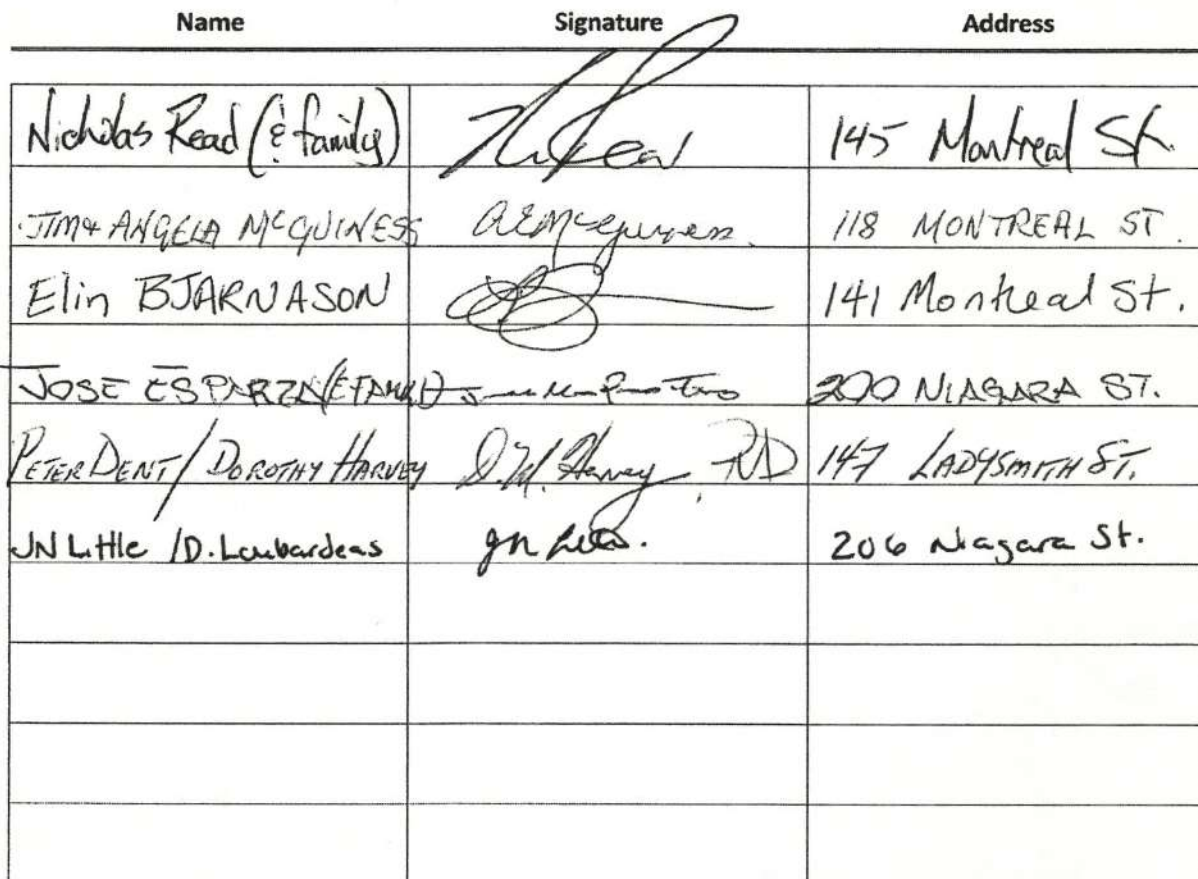 Name Signature Address
Nicholas Read (& family) 145 Montreal St.
JIM & ANGELA McGUINESS AEMcGuiness. 118 MONTREAL ST.
Elin BJARNASON 141 Montreal St.
JOSE ESPARZA (& FAMILY) 200 NIAGARA ST.
PETER DENT / DOROTHY HARVEY D.M. Harvey, PD 147 LADYSMITH ST.
JN Little / D. Loubardeas JN Little. 206 Niagara St.